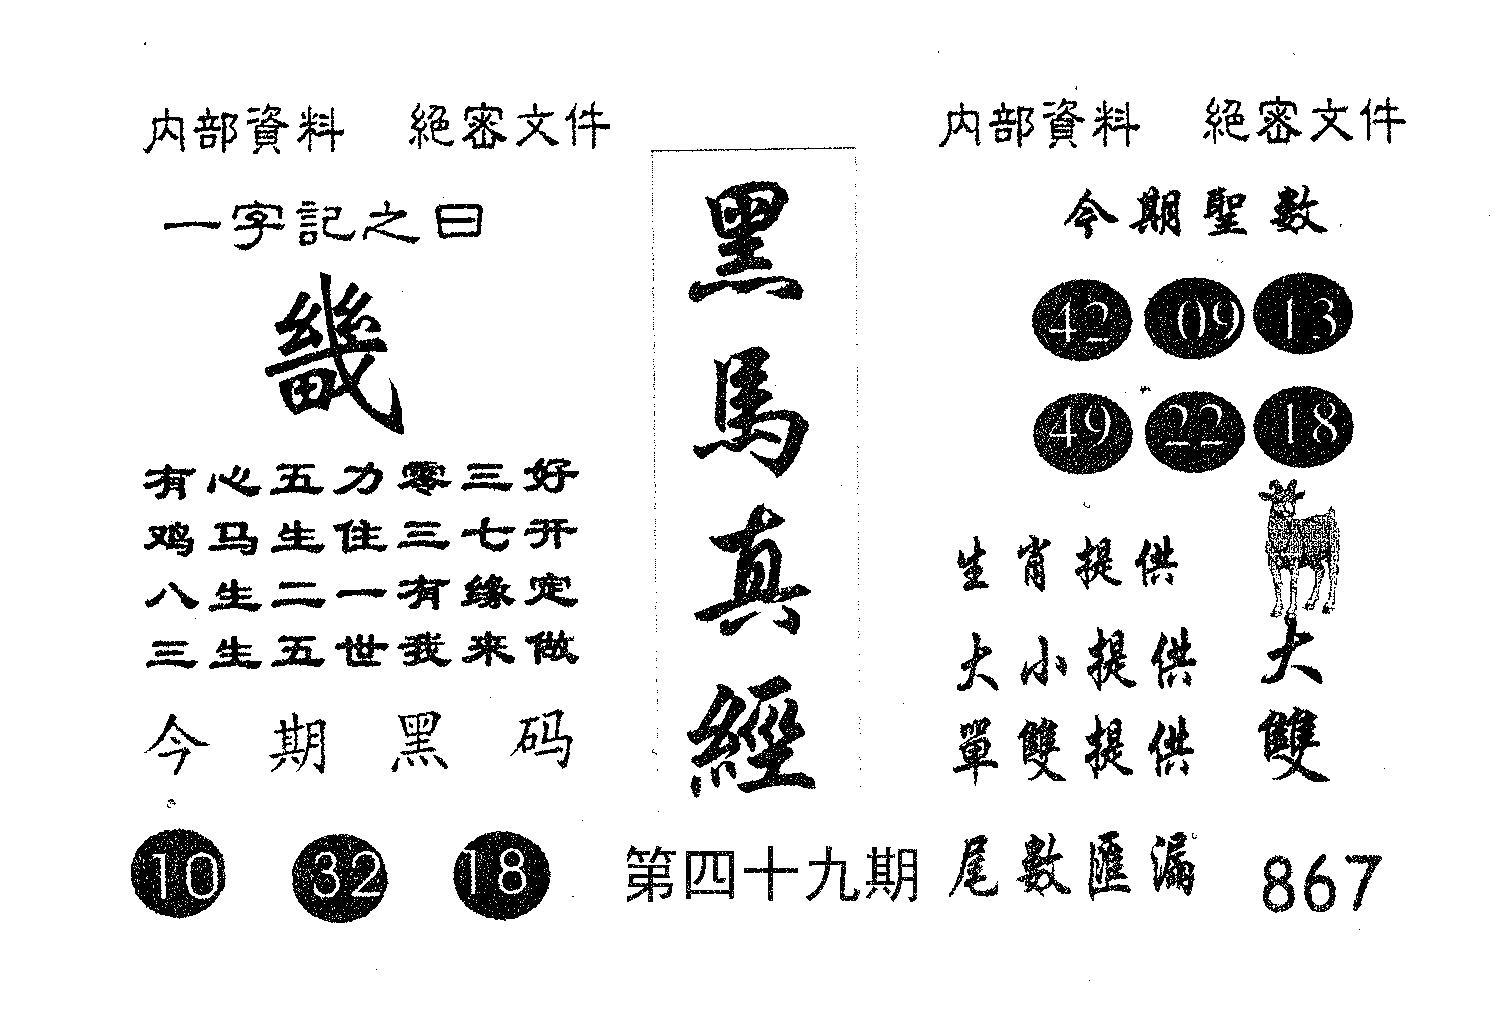 内部資料 絕密文件
一字記之曰
畿
有心五力零三好
鸡马生住三七开
八生二一有缘定
三生五世我来做
今期黑码
10 32 18
黑馬真經
第四十九期
内部資料 絕密文件
今期聖數
42 09 13
49 22 18
生肖提供
大小提供 大
單雙提供 雙
尾數匯漏 867